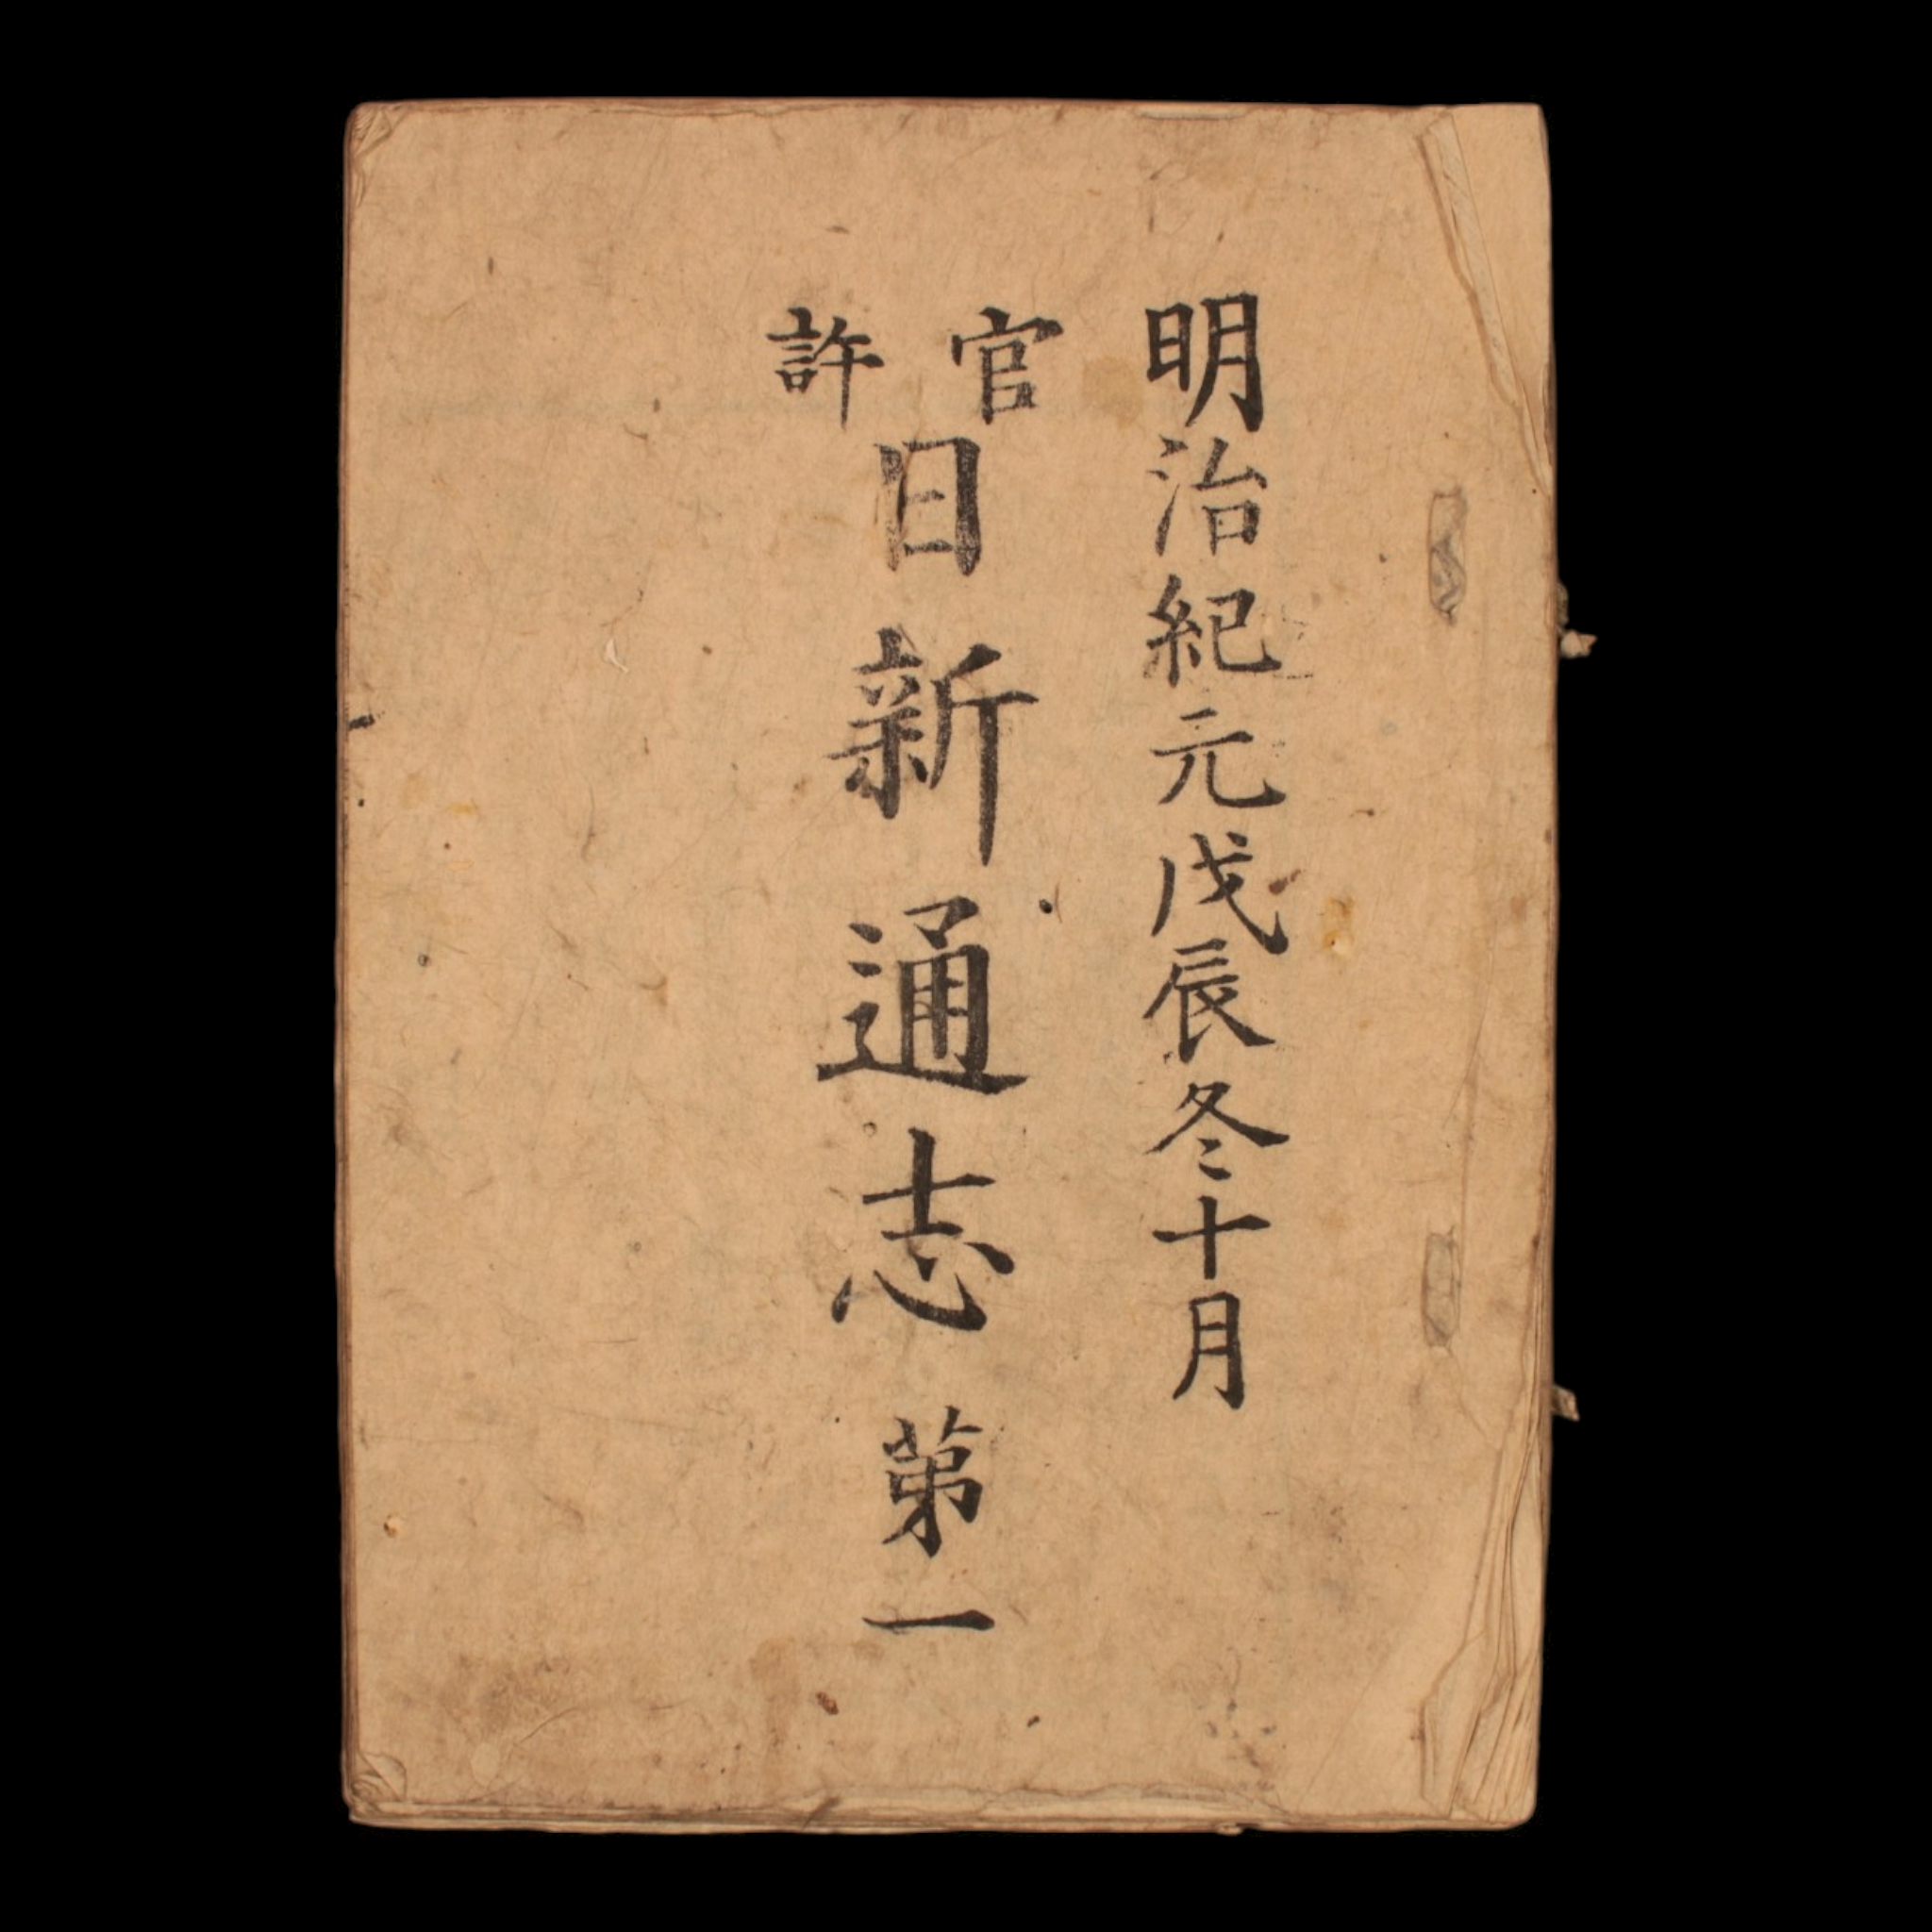 明治紀元戊辰冬十月
官許
日新通志 苐一